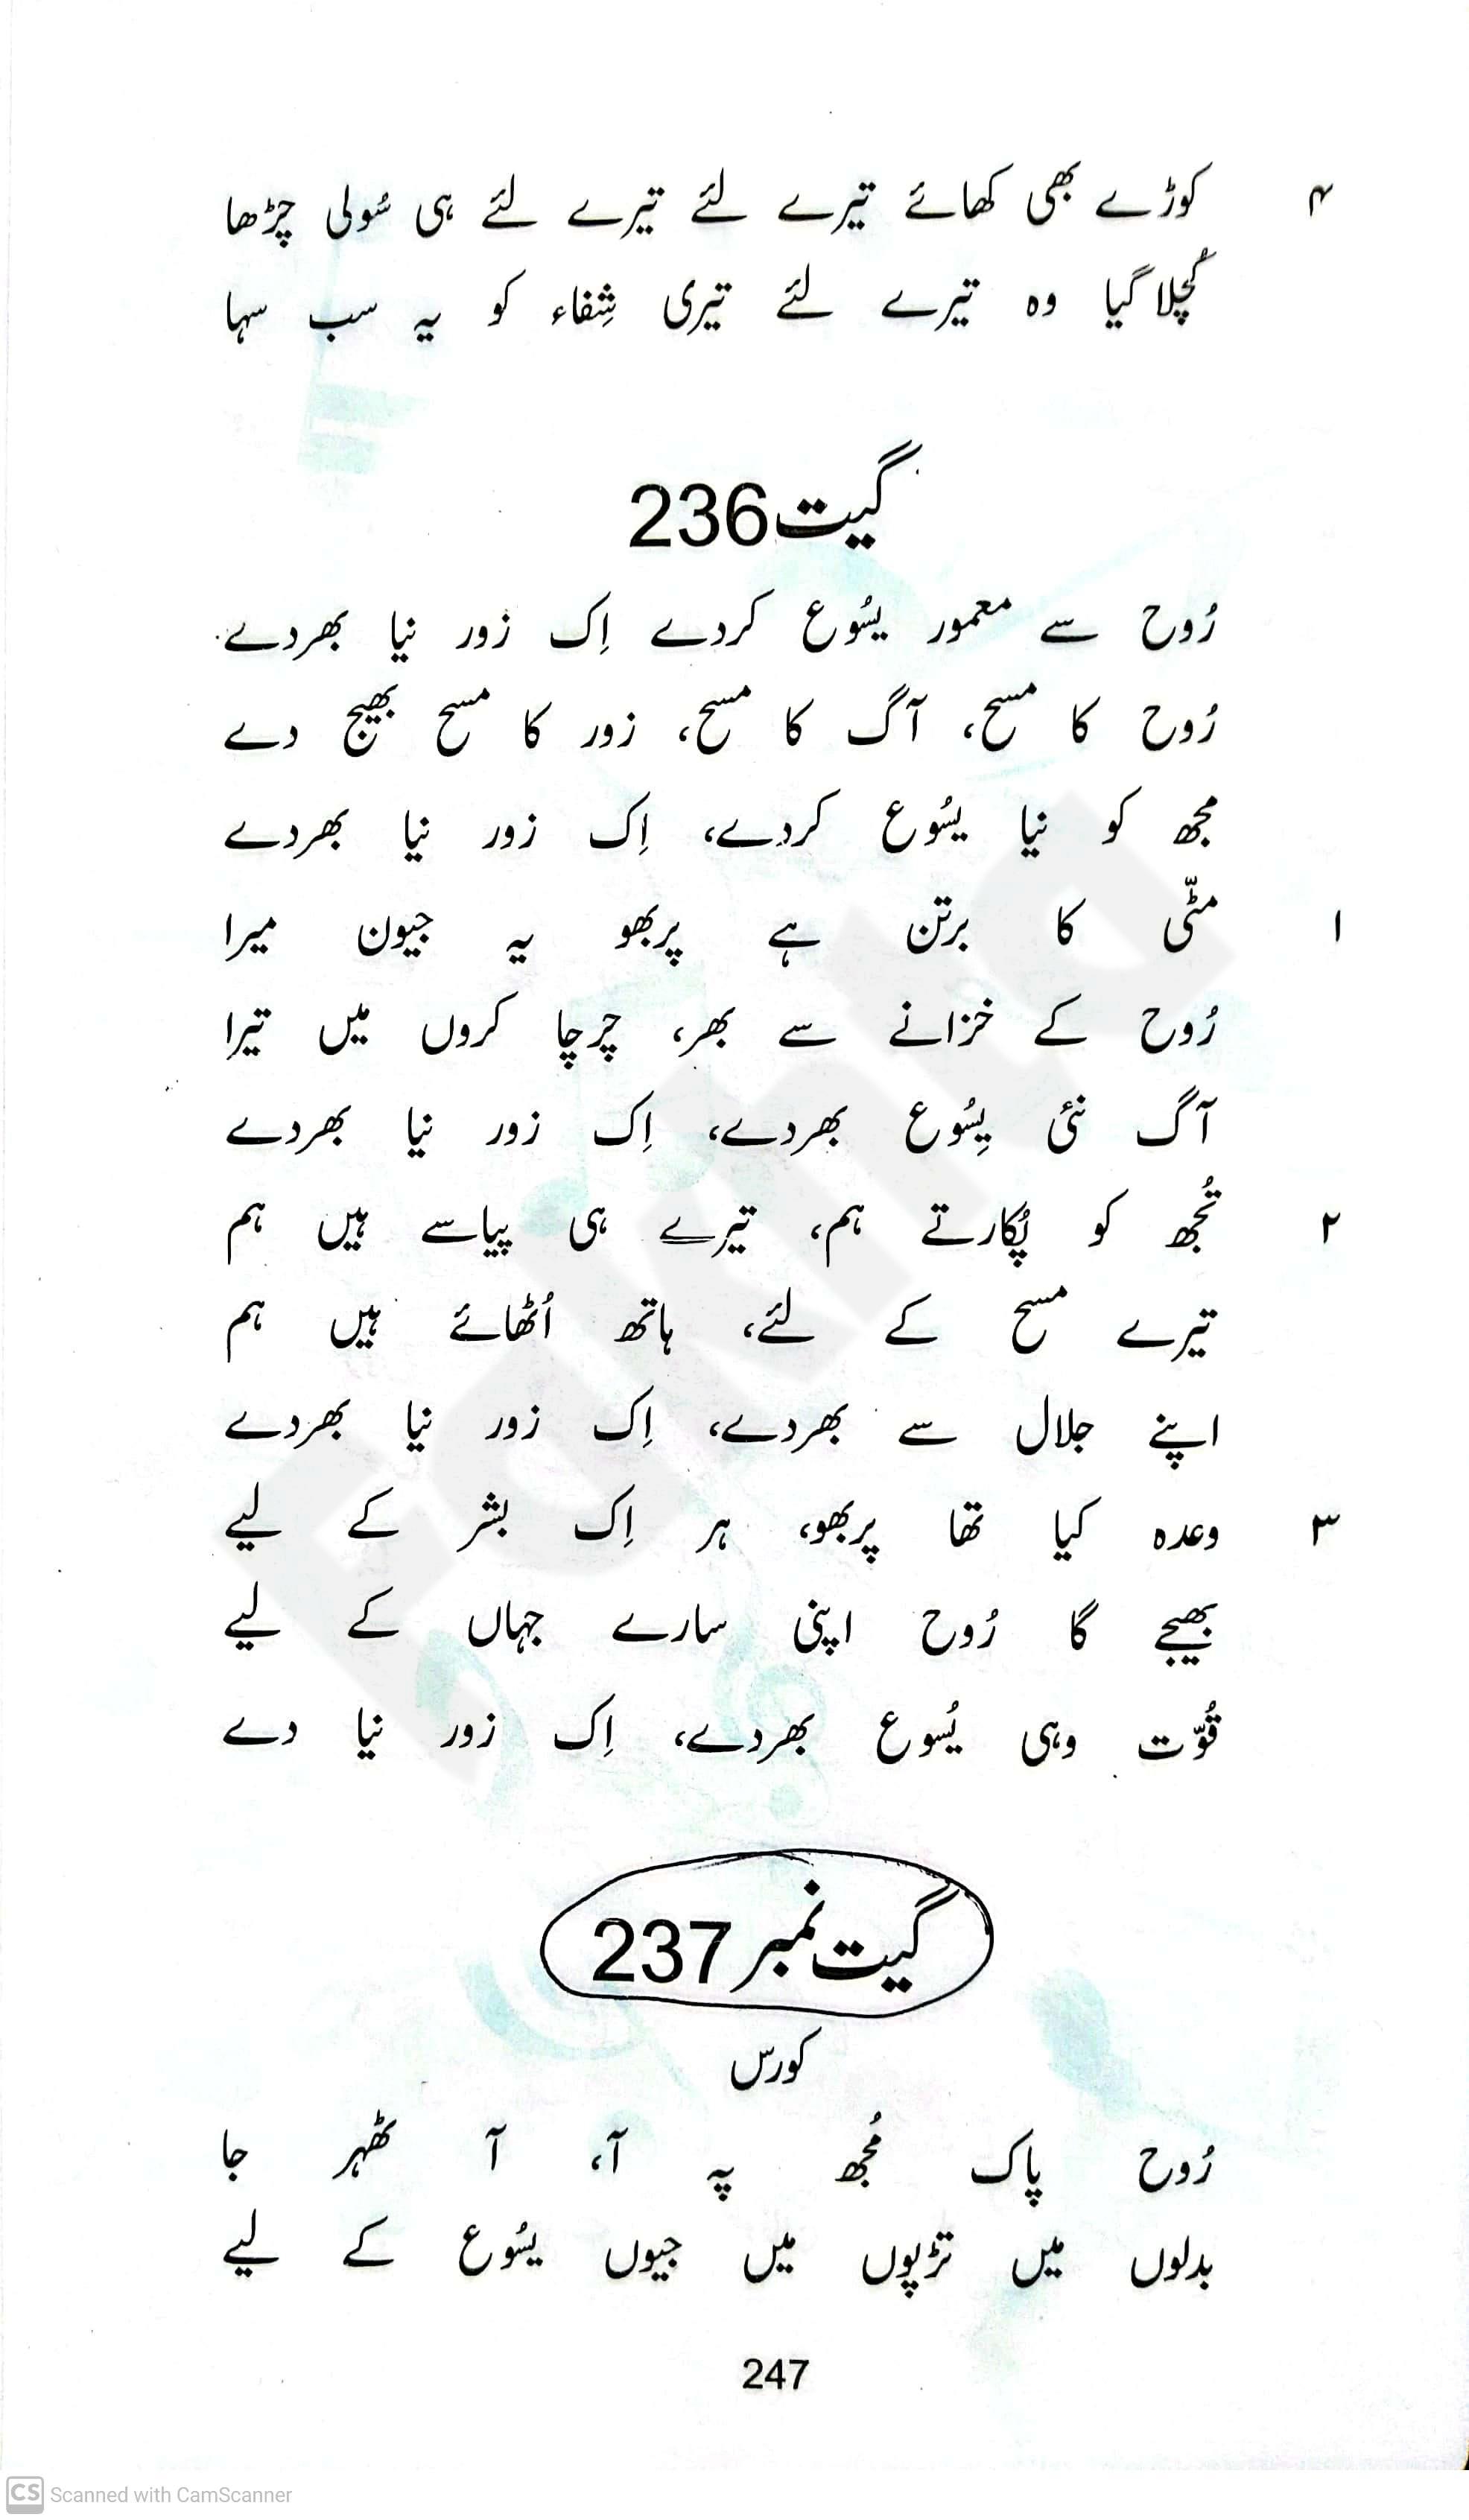 ۴ کوڑے بھی کھائے تیرے لئے تیرے لئے ہی سُولی چڑھا
کُچلا گیا وہ تیرے لئے تیری شِفاء کو یہ سب سہا
گیت 236
رُوح سے معمور یسُوع کردے اِک زور نیا بھردے
رُوح کا مسح، آگ کا مسح، زور کا مسح بھیج دے
مجھ کو نیا یسُوع کردے، اِک زور نیا بھردے
۱ مٹّی کا برتن ہے پربھو یہ جیون میرا
رُوح کے خزانے سے بھر، چرچا کروں میں تیرا
آگ نئی یِسُوع بھردے، اِک زور نیا بھردے
۲ تُجھ کو پُکارتے ہم، تیرے ہی پیاسے ہیں ہم
تیرے مسح کے لئے، ہاتھ اُٹھائے ہیں ہم
اپنے جلال سے بھردے، اِک زور نیا بھردے
۳ وعدہ کیا تھا پربھو، ہر اِک بشر کے لیے
بھیجے گا رُوح اپنی سارے جہاں کے لیے
قُوّت وہی یُسوع بھردے، اِک زور نیا دے
گیت نمبر 237
کورس
رُوح پاک مُجھ پہ آ، آ ٹھہر جا
بدلوں میں تڑپوں میں جیوں یسُوع کے لیے
247
Fakhta
CS Scanned with CamScanner